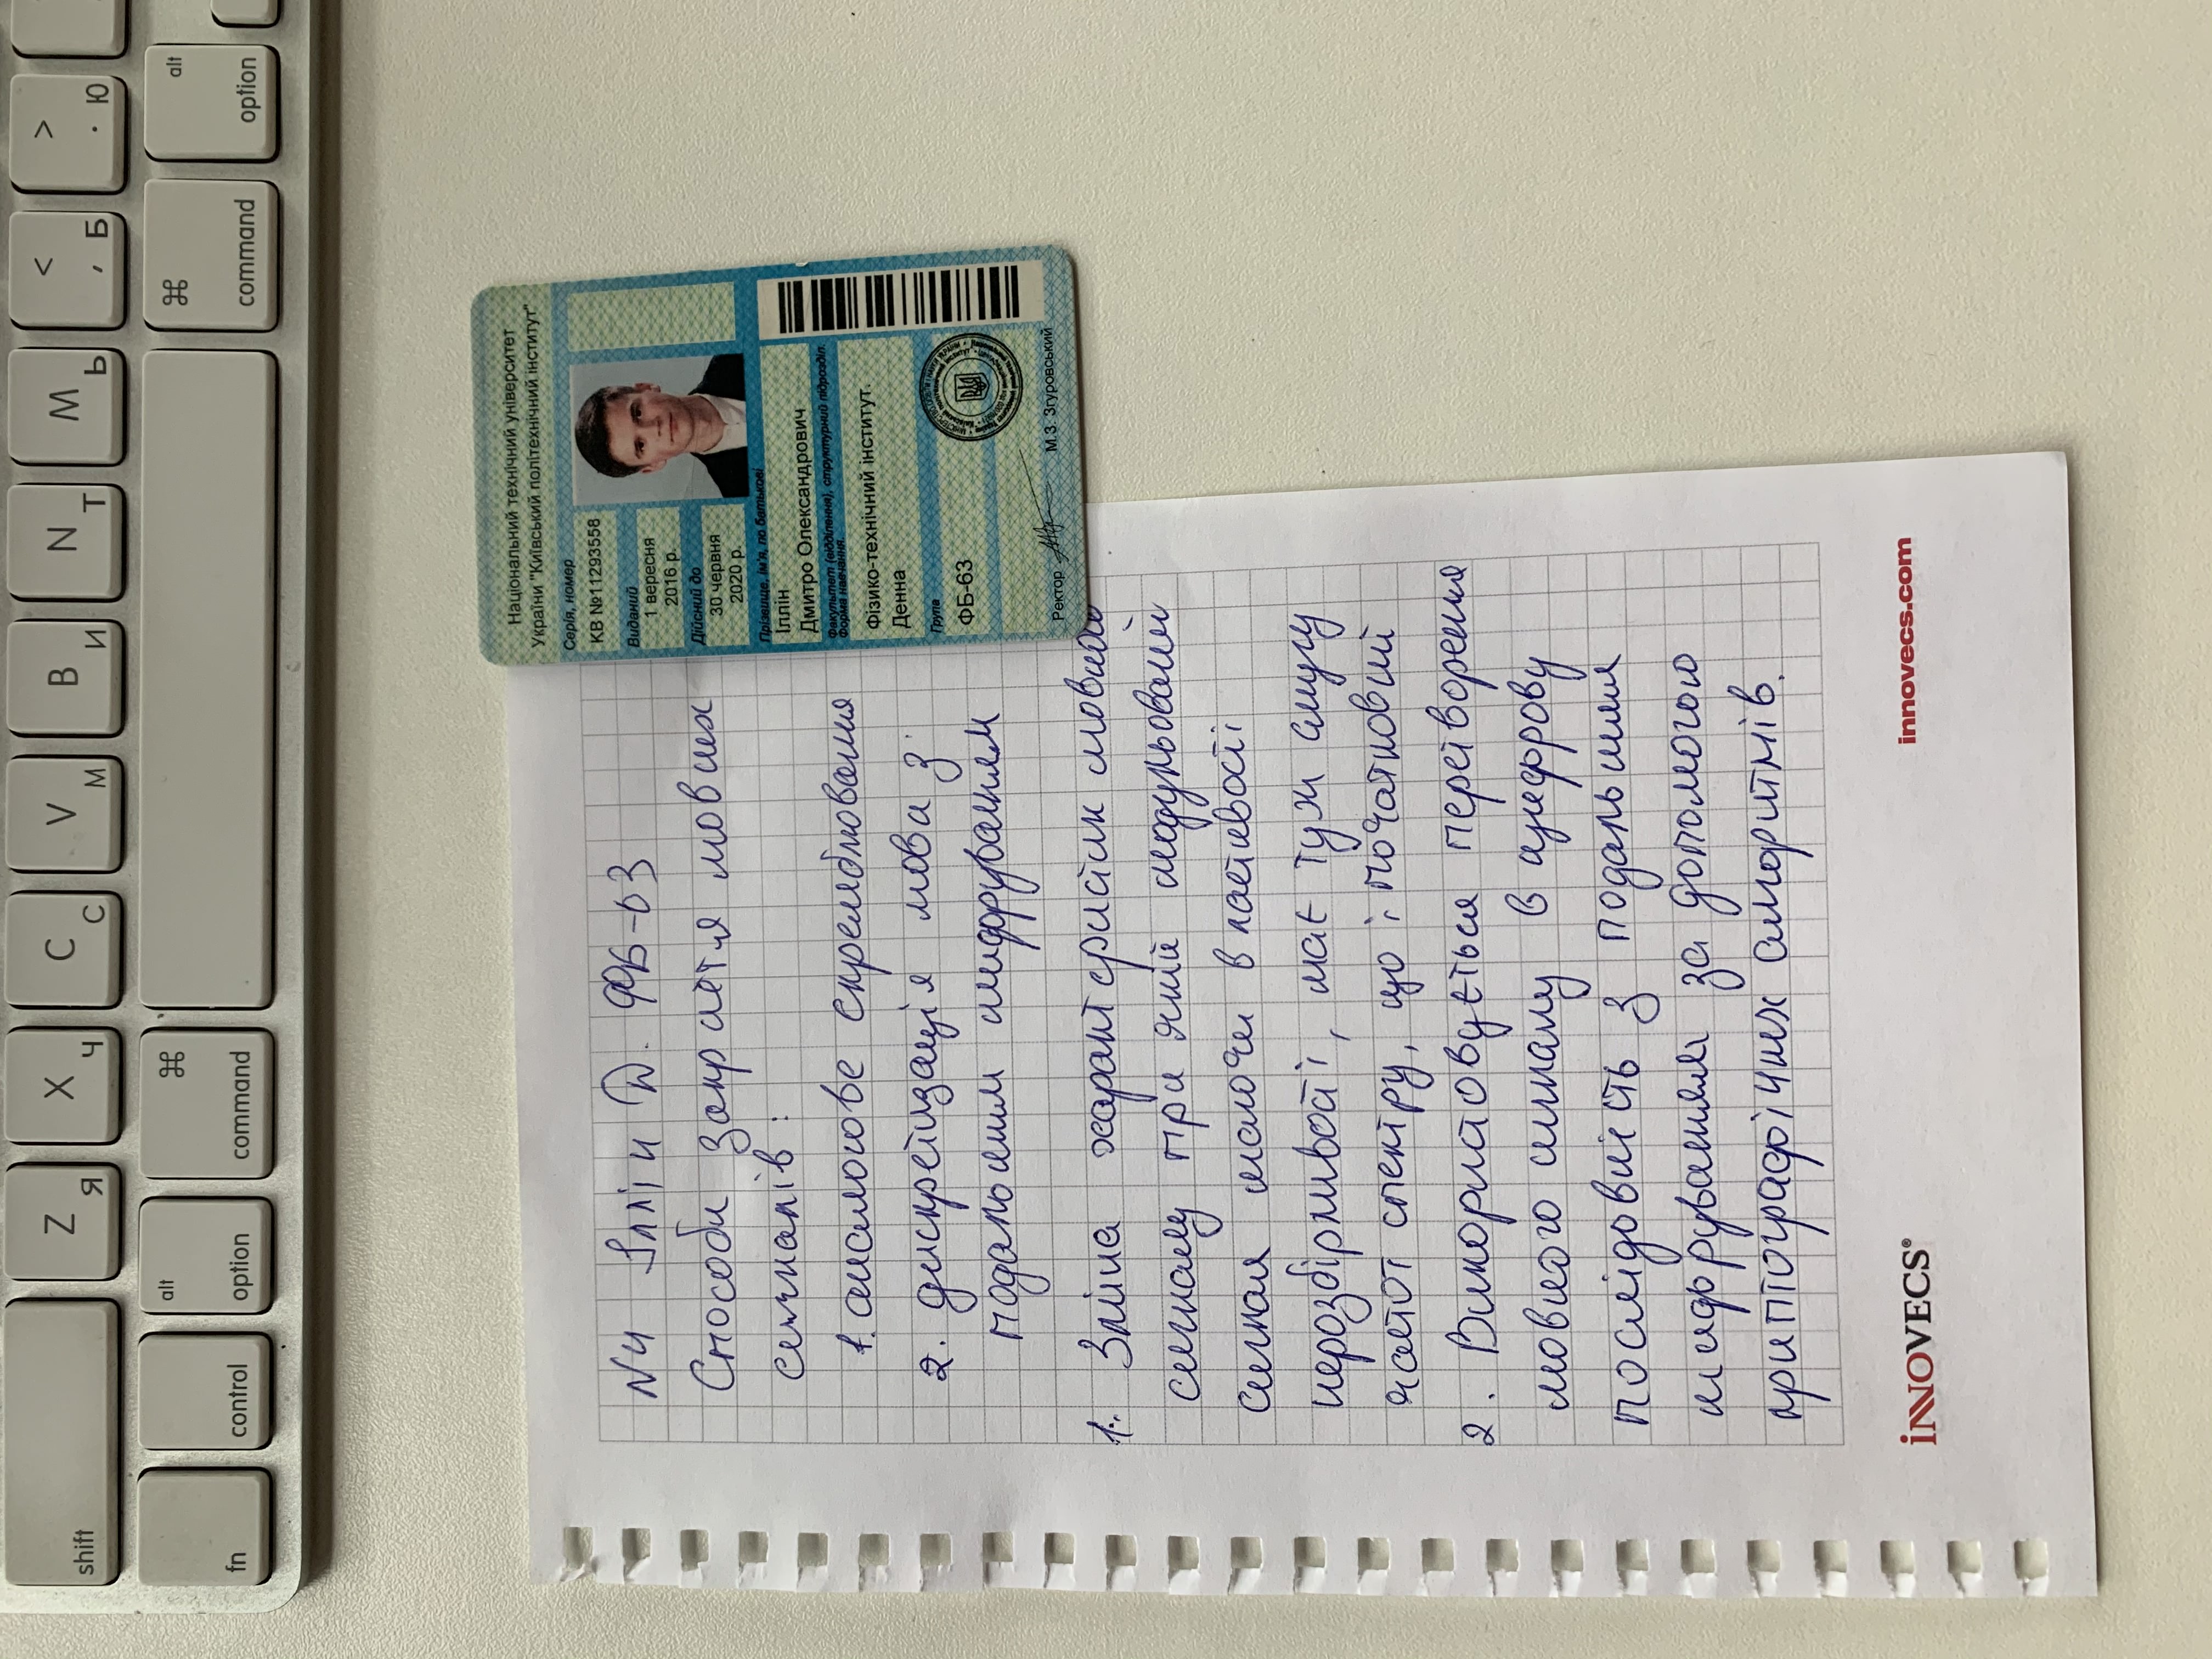 shift
Z Я
X Ч
C С
V М
B И
N Т
M Ь
< , Б
> . Ю
fn
control
alt option
⌘ command
⌘ command
alt option
Національний технічний університет
України "Київський політехнічний інститут"
Серія, номер
КВ №11293558
Виданий
1 вересня
2016 р.
Дійсний до
30 червня
2020 р.
Прізвище, ім'я, по батькові
Іллін
Дмитро Олександрович
Факультет (відділення), структурний підрозділ.
Форма навчання.
Фізико-технічний інститут.
Денна
Група
ФБ-63
Ректор М.З. Згуровський
№4 Іллін Д. ФБ-63
Способи закриття мовних
сигналів:
1. аналогове скремблювання
2. дискретизація мови з
подальшим шифруванням
1. Зміна характеристик мовного
сигналу при який модульований
сигнал маючи властивості
нерозбірливості, має ту ж смугу
частот спектру, що і початковий
2. Використовується перетворення
мовного сигналу в цифрову
послідовність з подальшим
шифруванням за допомогою
криптографічних алгоритмів.
iNNOVECS®
innovecs.com